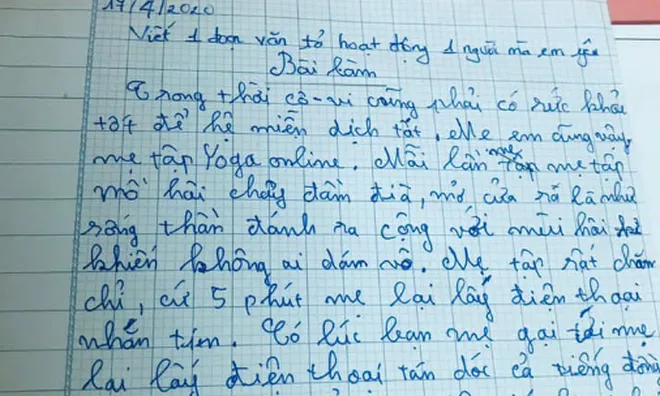 17/4/2020
Viết 1 đoạn văn tả hoạt động 1 người mà em yêu
Bài làm
Trong thời cô-vi cũng phải có sức khỏe
tốt để hệ miễn dịch tốt. Mẹ em cũng vậy,
mẹ tập Yoga online. Mỗi lần mẹ tập mẹ tập
mồ hôi chảy đầm đìa, mở cửa ra là như
rồng thần đánh ra cộng với mùi hôi
khiến không ai dám vô. Mẹ tập rất chăm
chỉ, cứ 5 phút mẹ lại lấy điện thoại
nhắn tin. Có lúc bạn mẹ gọi tới mẹ
lại lấy điện thoại tán dóc cả tiếng đồng